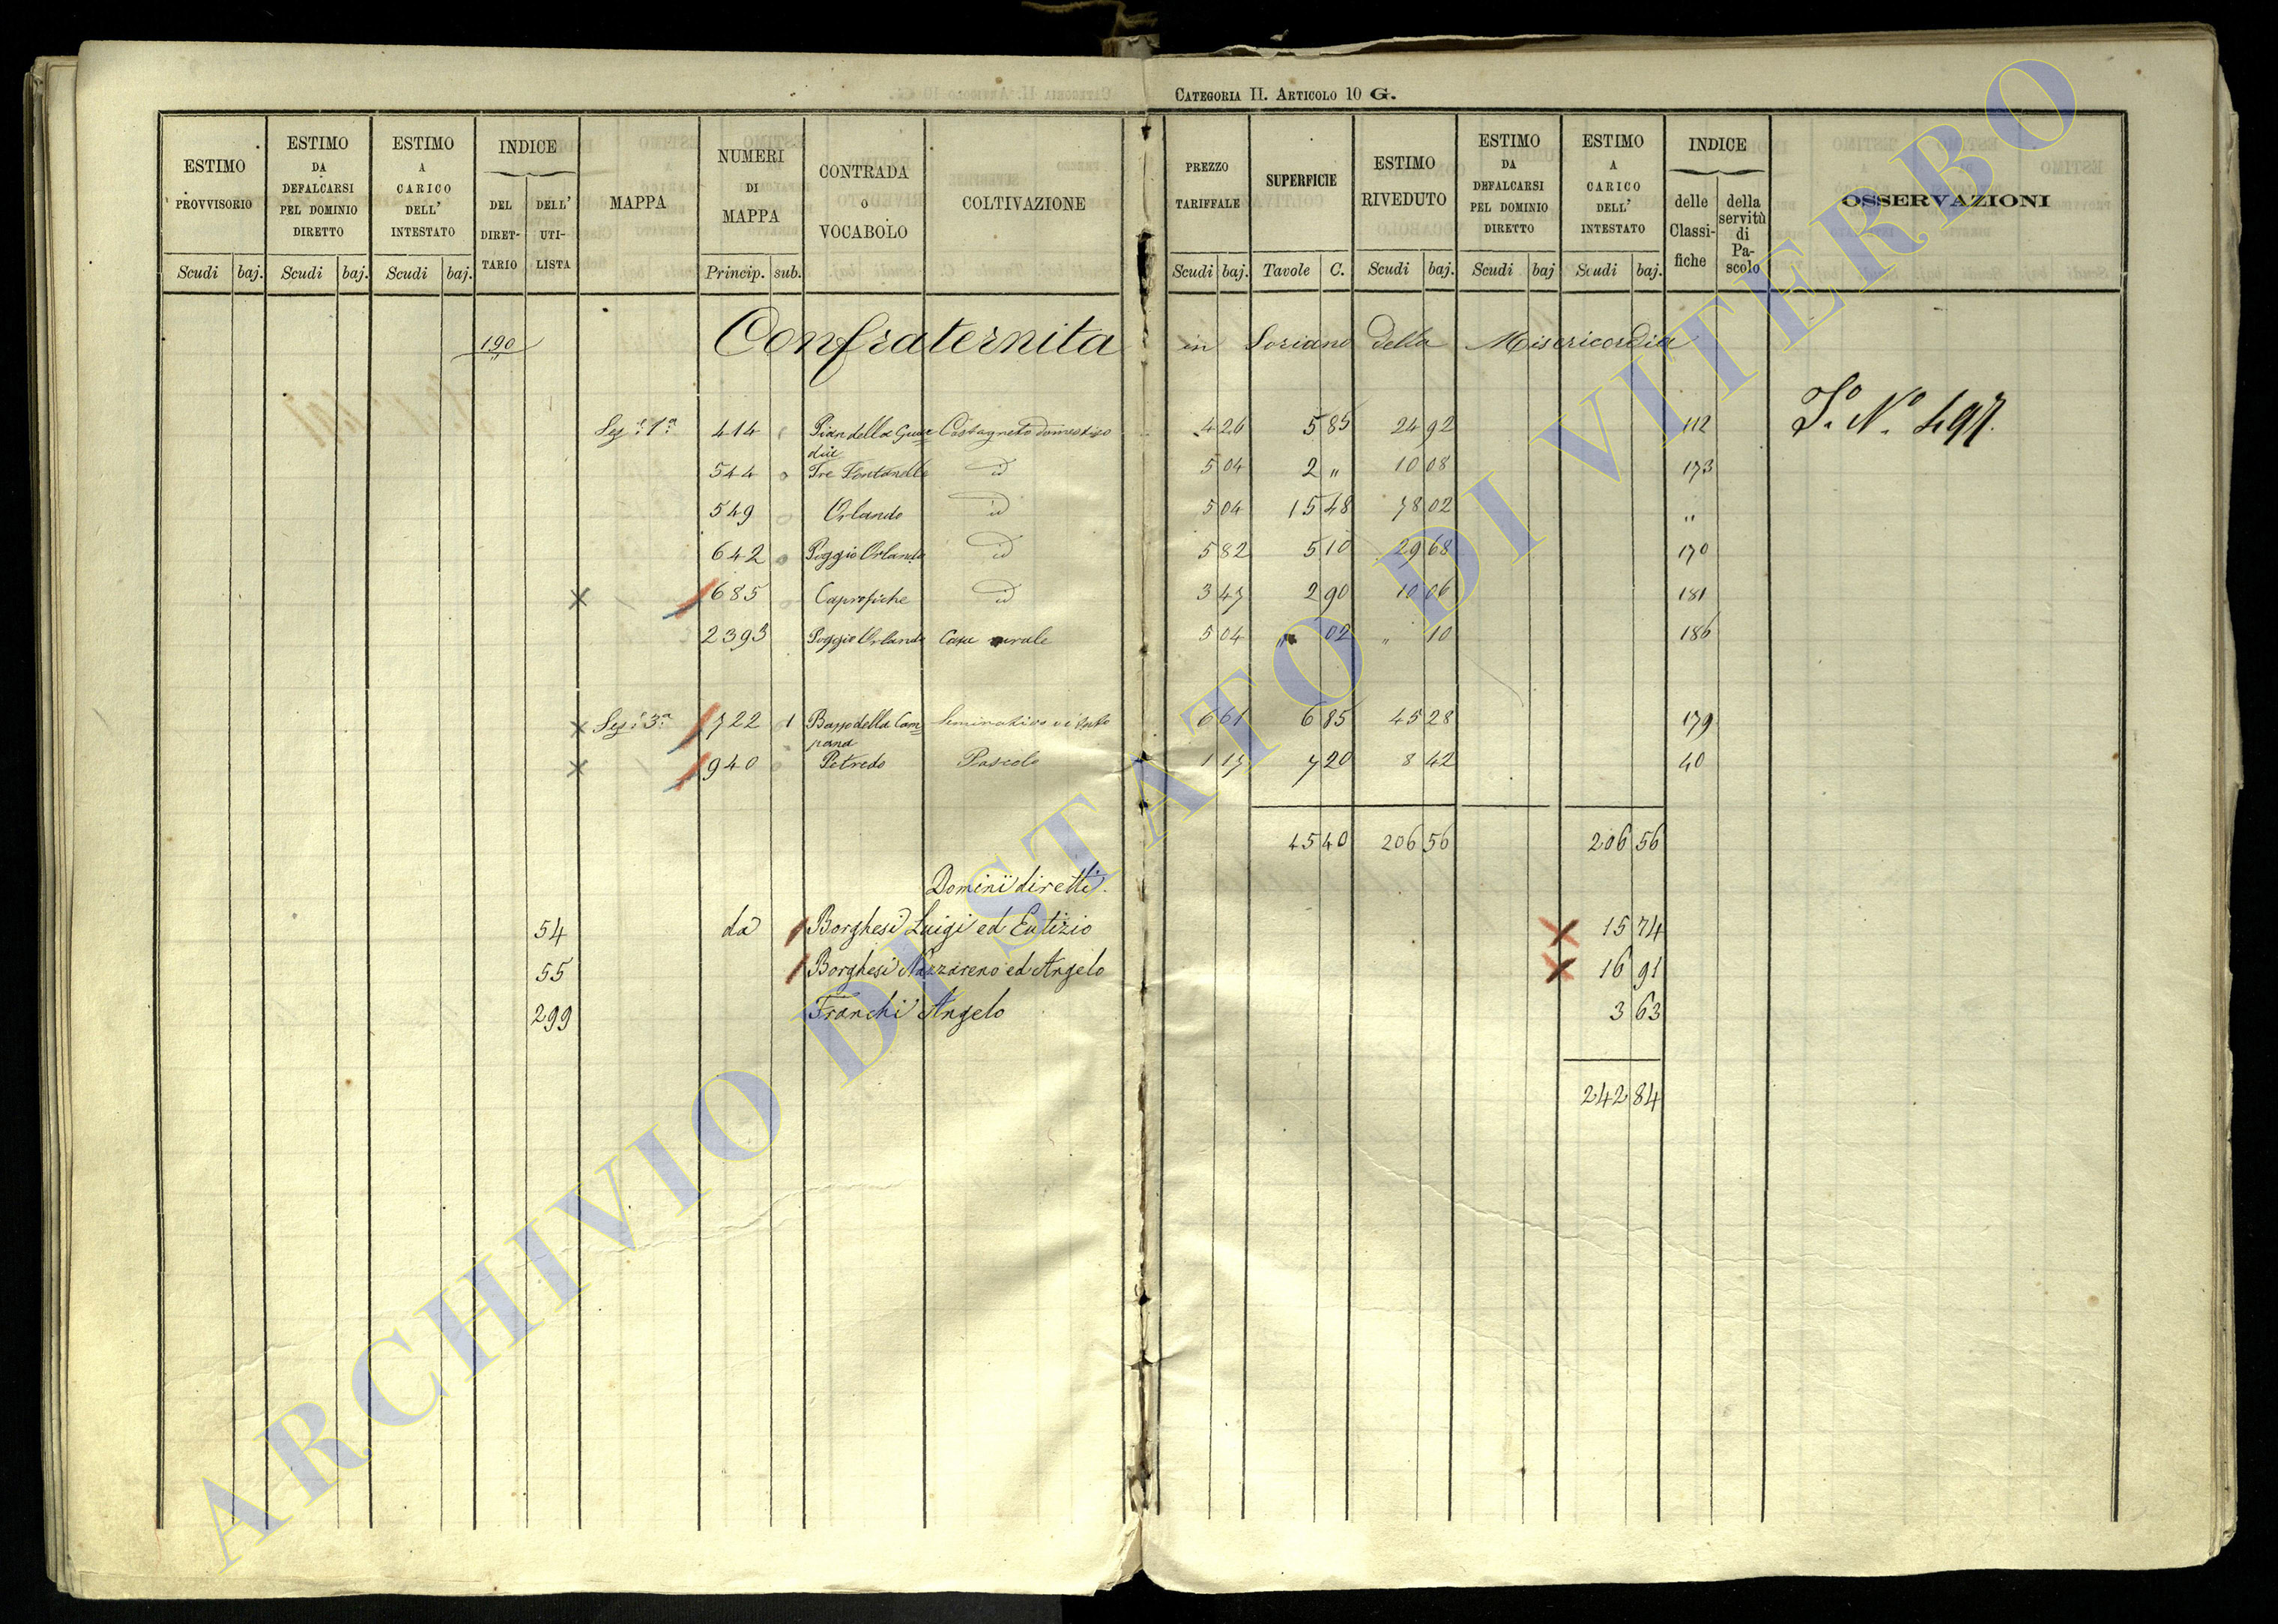 CATEGORIA II. ARTICOLO 10 G.
ESTIMO PROVVISORIO
Scudi baj.
ESTIMO DA DEFALCARSI PEL DOMINIO DIRETTO
Scudi baj.
ESTIMO A CARICO DELL' INTESTATO
Scudi baj.
INDICE
DEL DIRETTARIO
DELL' UTILISTA
MAPPA
NUMERI DI MAPPA
Princip. sub.
CONTRADA o VOCABOLO
COLTIVAZIONE
PREZZO TARIFFALE
Scudi baj.
SUPERFICIE
Tavole C.
ESTIMO RIVEDUTO
Scudi baj.
ESTIMO DA DEFALCARSI PEL DOMINIO DIRETTO
Scudi baj
ESTIMO A CARICO DELL' INTESTATO
Scudi baj.
INDICE
delle Classifiche
della servitù di Pascolo
OSSERVAZIONI
190 Confraternita in Soriano della Misericordia
Sez.e 1a 414 Pian della Guar= Castagneto domestico 4 26 5 85 24 92 112 S.o N.o 497.
544 Tre Fontanelle id 5 04 2 " 10 08 173
549 Orlando id 5 04 15 48 78 02 "
642 Poggio Orlando id 5 82 5 10 29 68 170
685 Caprofiche id 3 47 2 90 10 06 181
2393 Poggio Orlando Casa rurale 5 04 " 02 " 10 186
Sez.e 3a 722 1 della Cam= Seminativo vitato 6 61 6 85 45 28 179
pana
940 Petreto Pascolo 1 17 7 20 8 42 40
45 40 206 56 206 56
Dominii diretti.
54 da Borghesi Luigi ed Eutizio 15 74
55 Borghesi Nazzareno ed Angelo 16 91
299 Franchi Angelo 3 63
242 84
ARCHIVIO DI STATO DI VITERBO